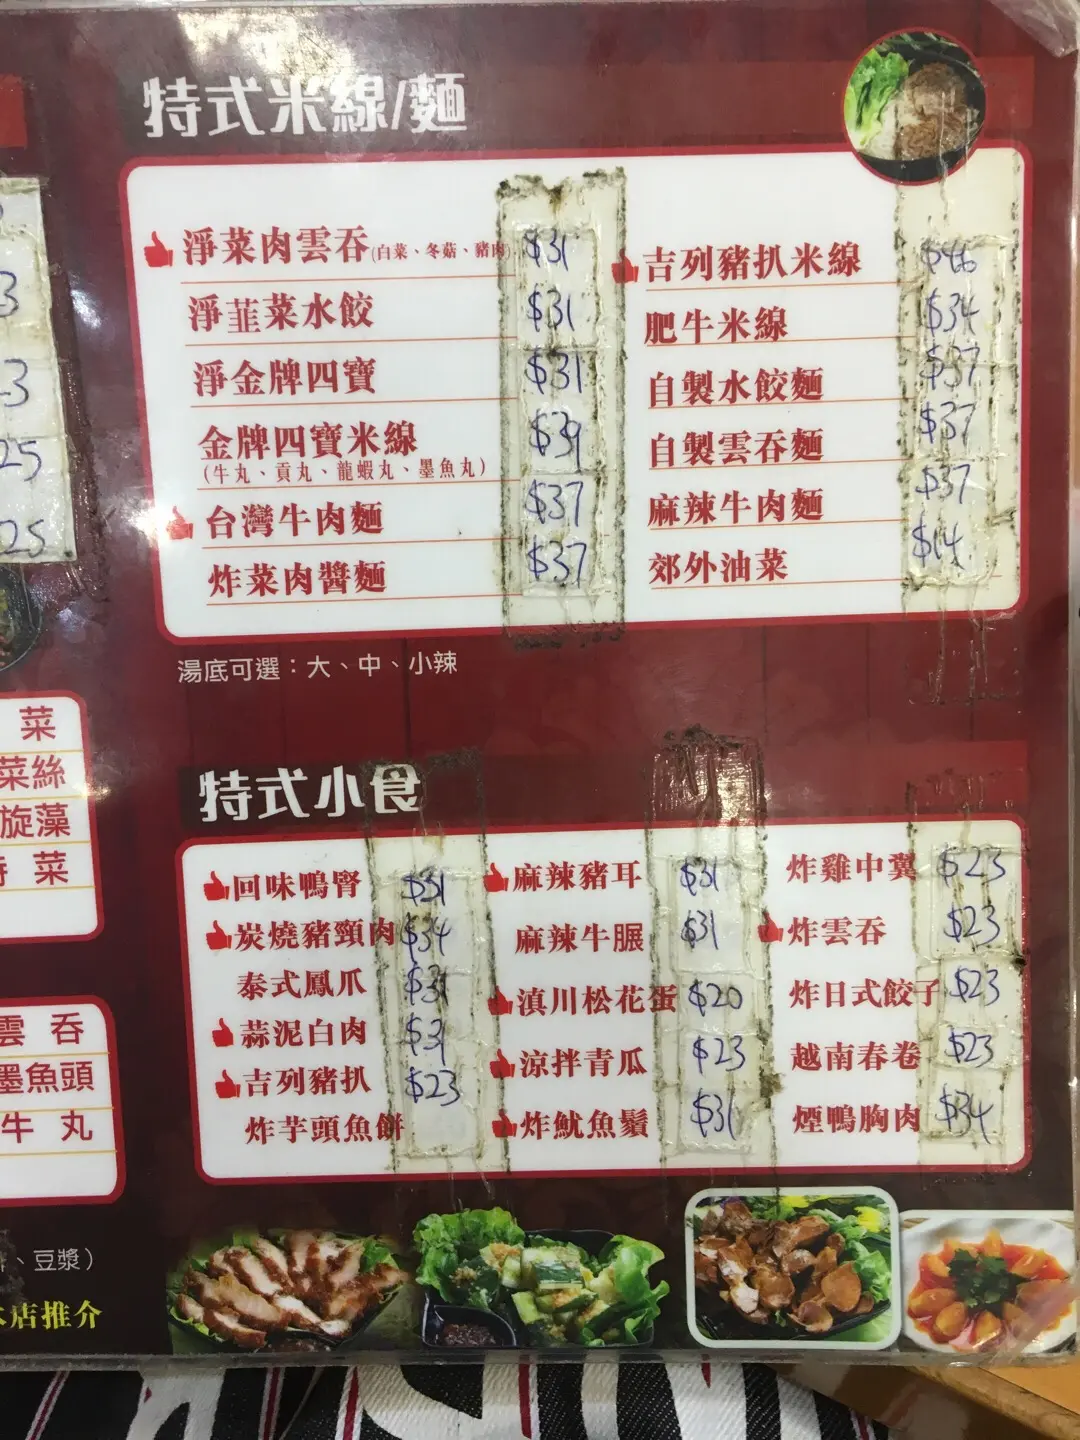 特式米線/麵
淨菜肉雲吞(白菜、冬菇、豬肉) $31
淨韮菜水餃 $31
淨金牌四寶 $31
金牌四寶米線 $39
(牛丸、貢丸、龍蝦丸、墨魚丸)
台灣牛肉麵 $37
炸菜肉醬麵 $37
吉列豬扒米線 $46
肥牛米線 $34
自製水餃麵 $37
自製雲吞麵 $37
麻辣牛肉麵 $37
郊外油菜 $14
湯底可選：大、中、小辣
特式小食
回味鴨腎 $31
炭燒豬頸肉 $34
泰式鳳爪 $31
蒜泥白肉 $31
吉列豬扒 $23
炸芋頭魚餅
麻辣豬耳 $31
麻辣牛𦟌 $31
滇川松花蛋 $20
涼拌青瓜 $23
炸魷魚鬚 $31
炸雞中翼 $23
炸雲吞 $23
炸日式餃子 $23
越南春卷 $23
煙鴨胸肉 $34
3
3
25
25
菜
菜絲
旋藻
菜
雲 吞
墨魚頭
牛 丸
、豆漿）
店推介